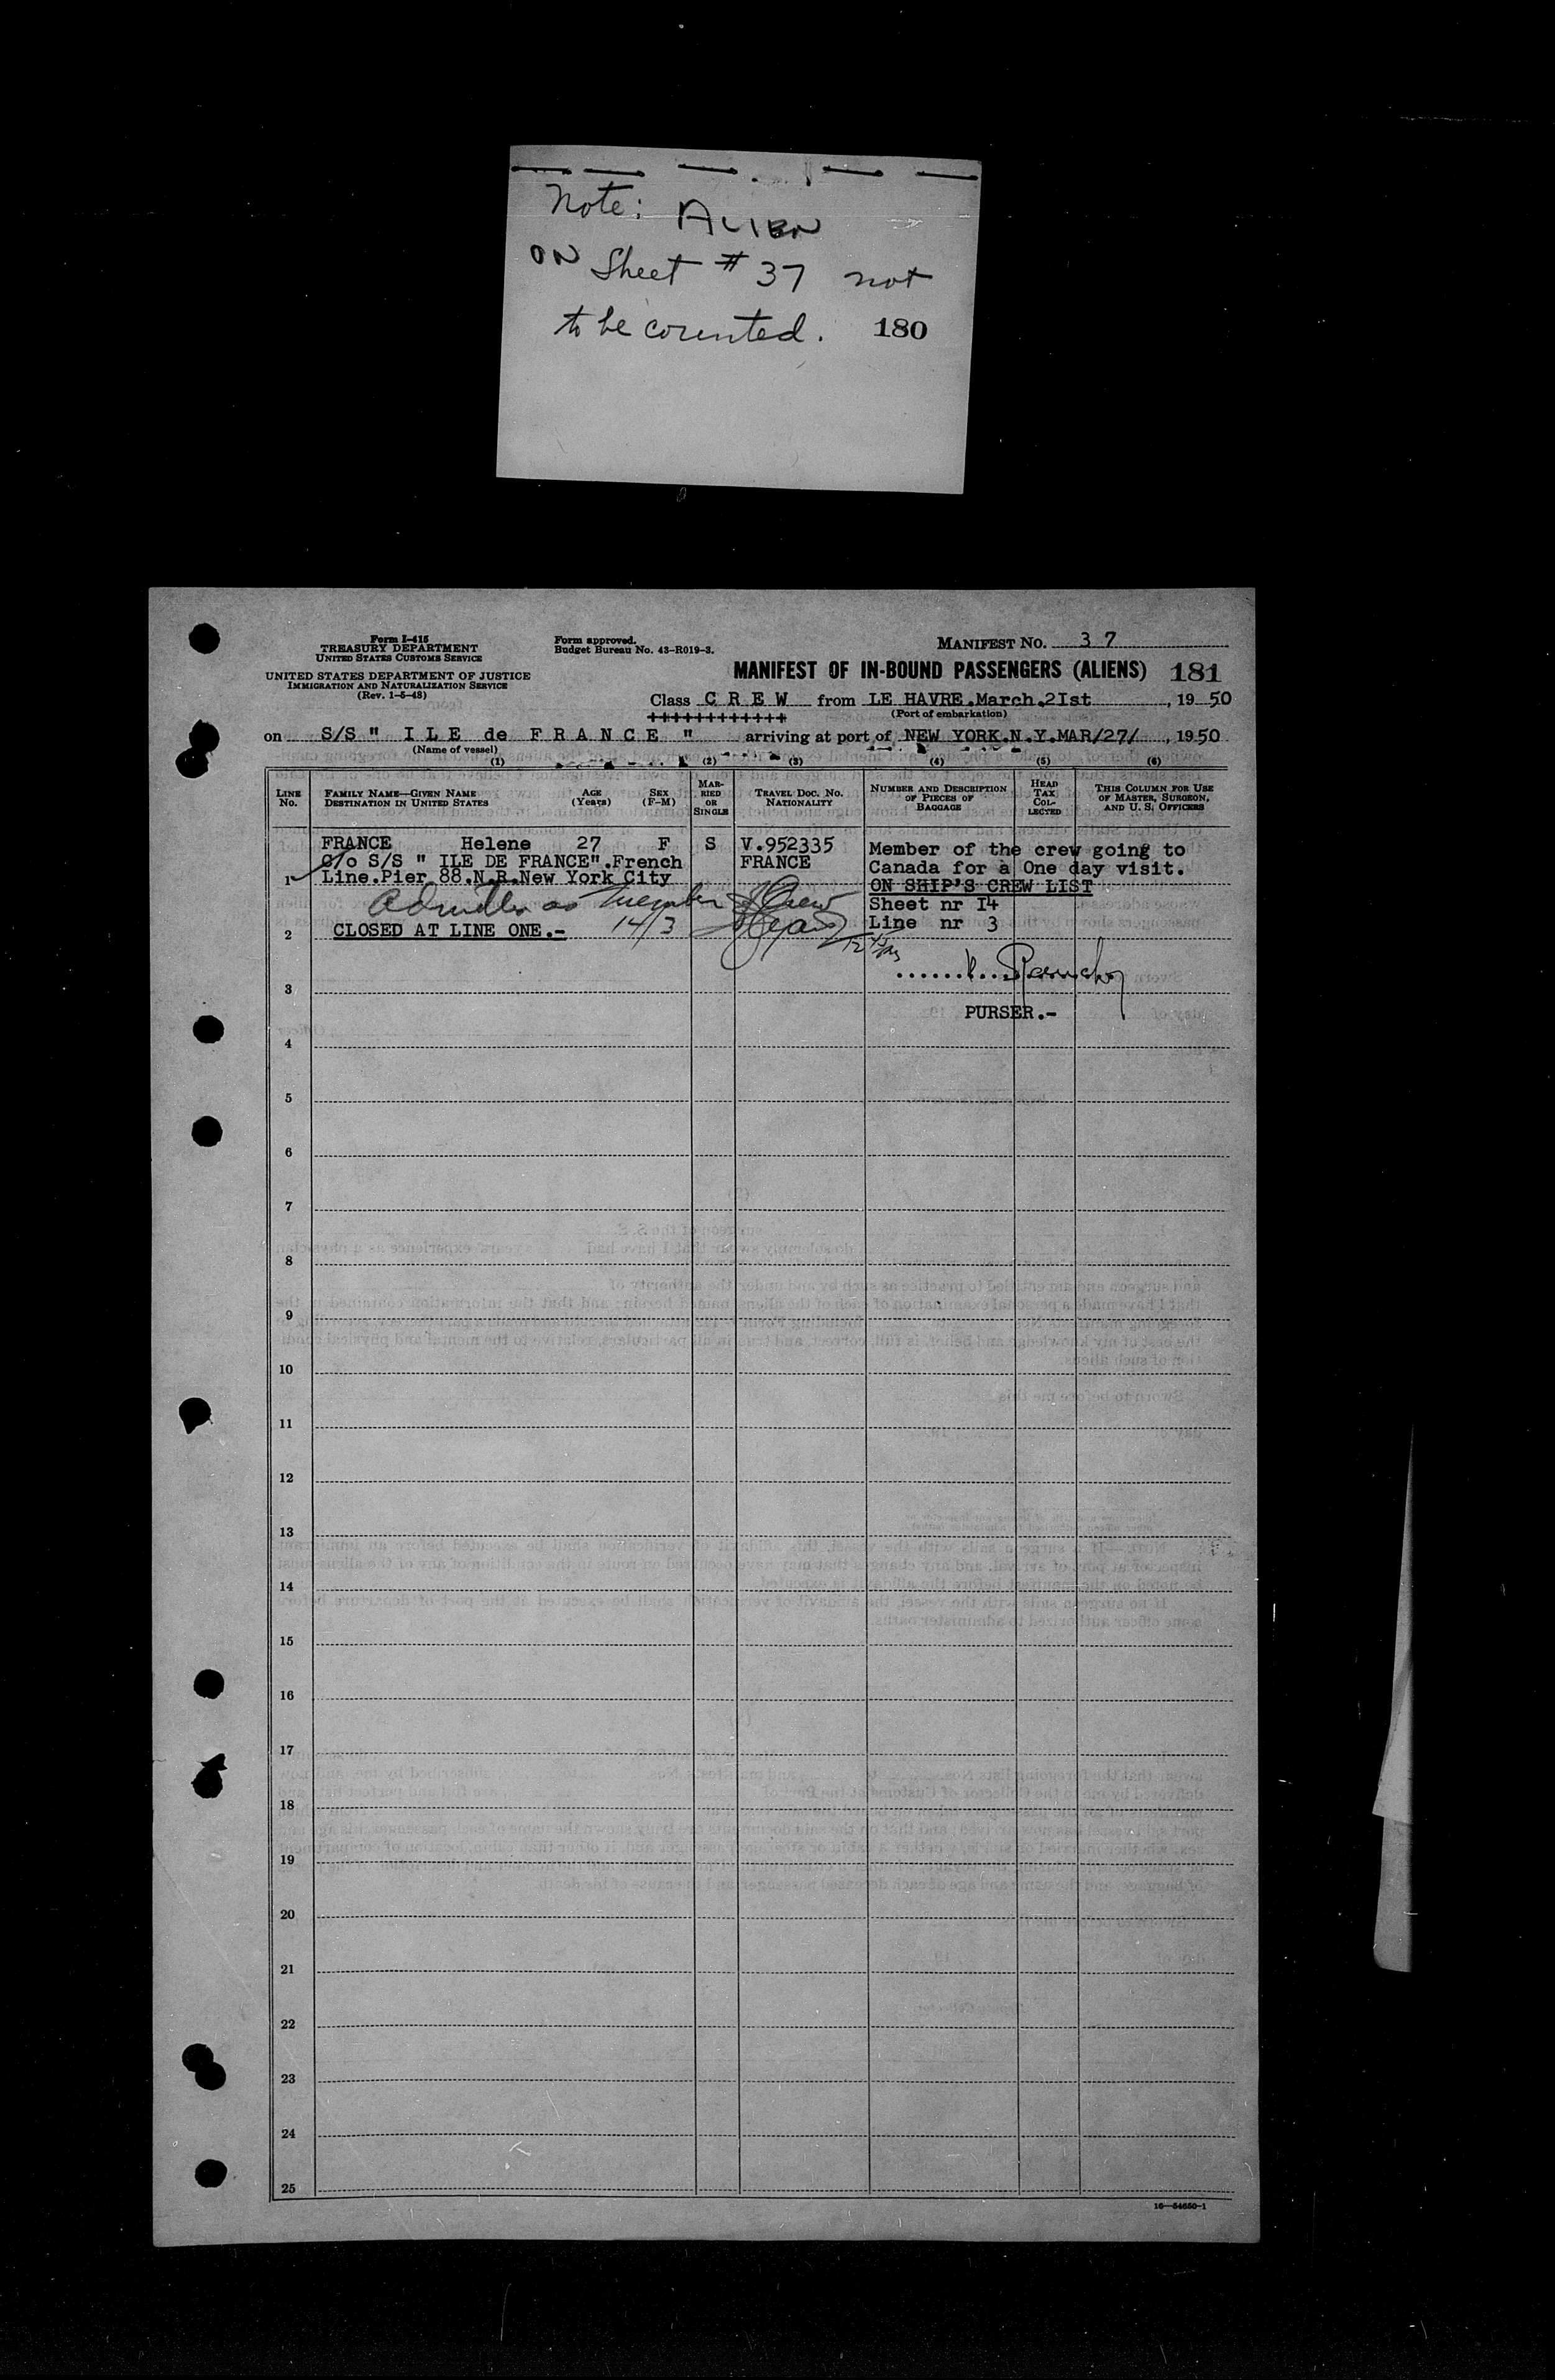 Note: ALIEN
ON Sheet # 37 not
to be counted. 180
Form I-415
TREASURY DEPARTMENT
UNITED STATES CUSTOMS SERVICE
UNITED STATES DEPARTMENT OF JUSTICE
IMMIGRATION AND NATURALIZATION SERVICE
(Rev. 1-5-48)
Form approved.
Budget Bureau No. 43-R019-3.
MANIFEST NO. 3 7
MANIFEST OF IN-BOUND PASSENGERS (ALIENS) 181
Class C R E W from LE HAVRE.March.2Ist, 19 50
++++++++++++ (Port of embarkation)
on S/S " I L E de F R A N C E " arriving at port of NEW YORK.N.Y.MAR/27/, 1950
(Name of vessel)
(1) (2) (3) (4) (5) (6)
LINE NO. FAMILY NAME—GIVEN NAME DESTINATION IN UNITED STATES AGE (Years) SEX (F-M) MARRIED OR SINGLE TRAVEL DOC. NO. NATIONALITY NUMBER AND DESCRIPTION OF PIECES OF BAGGAGE HEAD TAX COLLECTED THIS COLUMN FOR USE OF MASTER, SURGEON, AND U. S. OFFICERS
FRANCE Helene 27 F S V.952335 Member of the crew going to
C/o S/S " ILE DE FRANCE".French FRANCE Canada for a One day visit.
1 Line.Pier 88.N.R.New York City ON SHIP'S CREW LIST
as member of Crew Sheet nr I4
2 CLOSED AT LINE ONE.- 14/3 Line nr 3
3
PURSER.-
4
5
6
7
8
9
10
11
12
13
14
15
16
17
18
19
20
21
22
23
24
25
16—54650-1